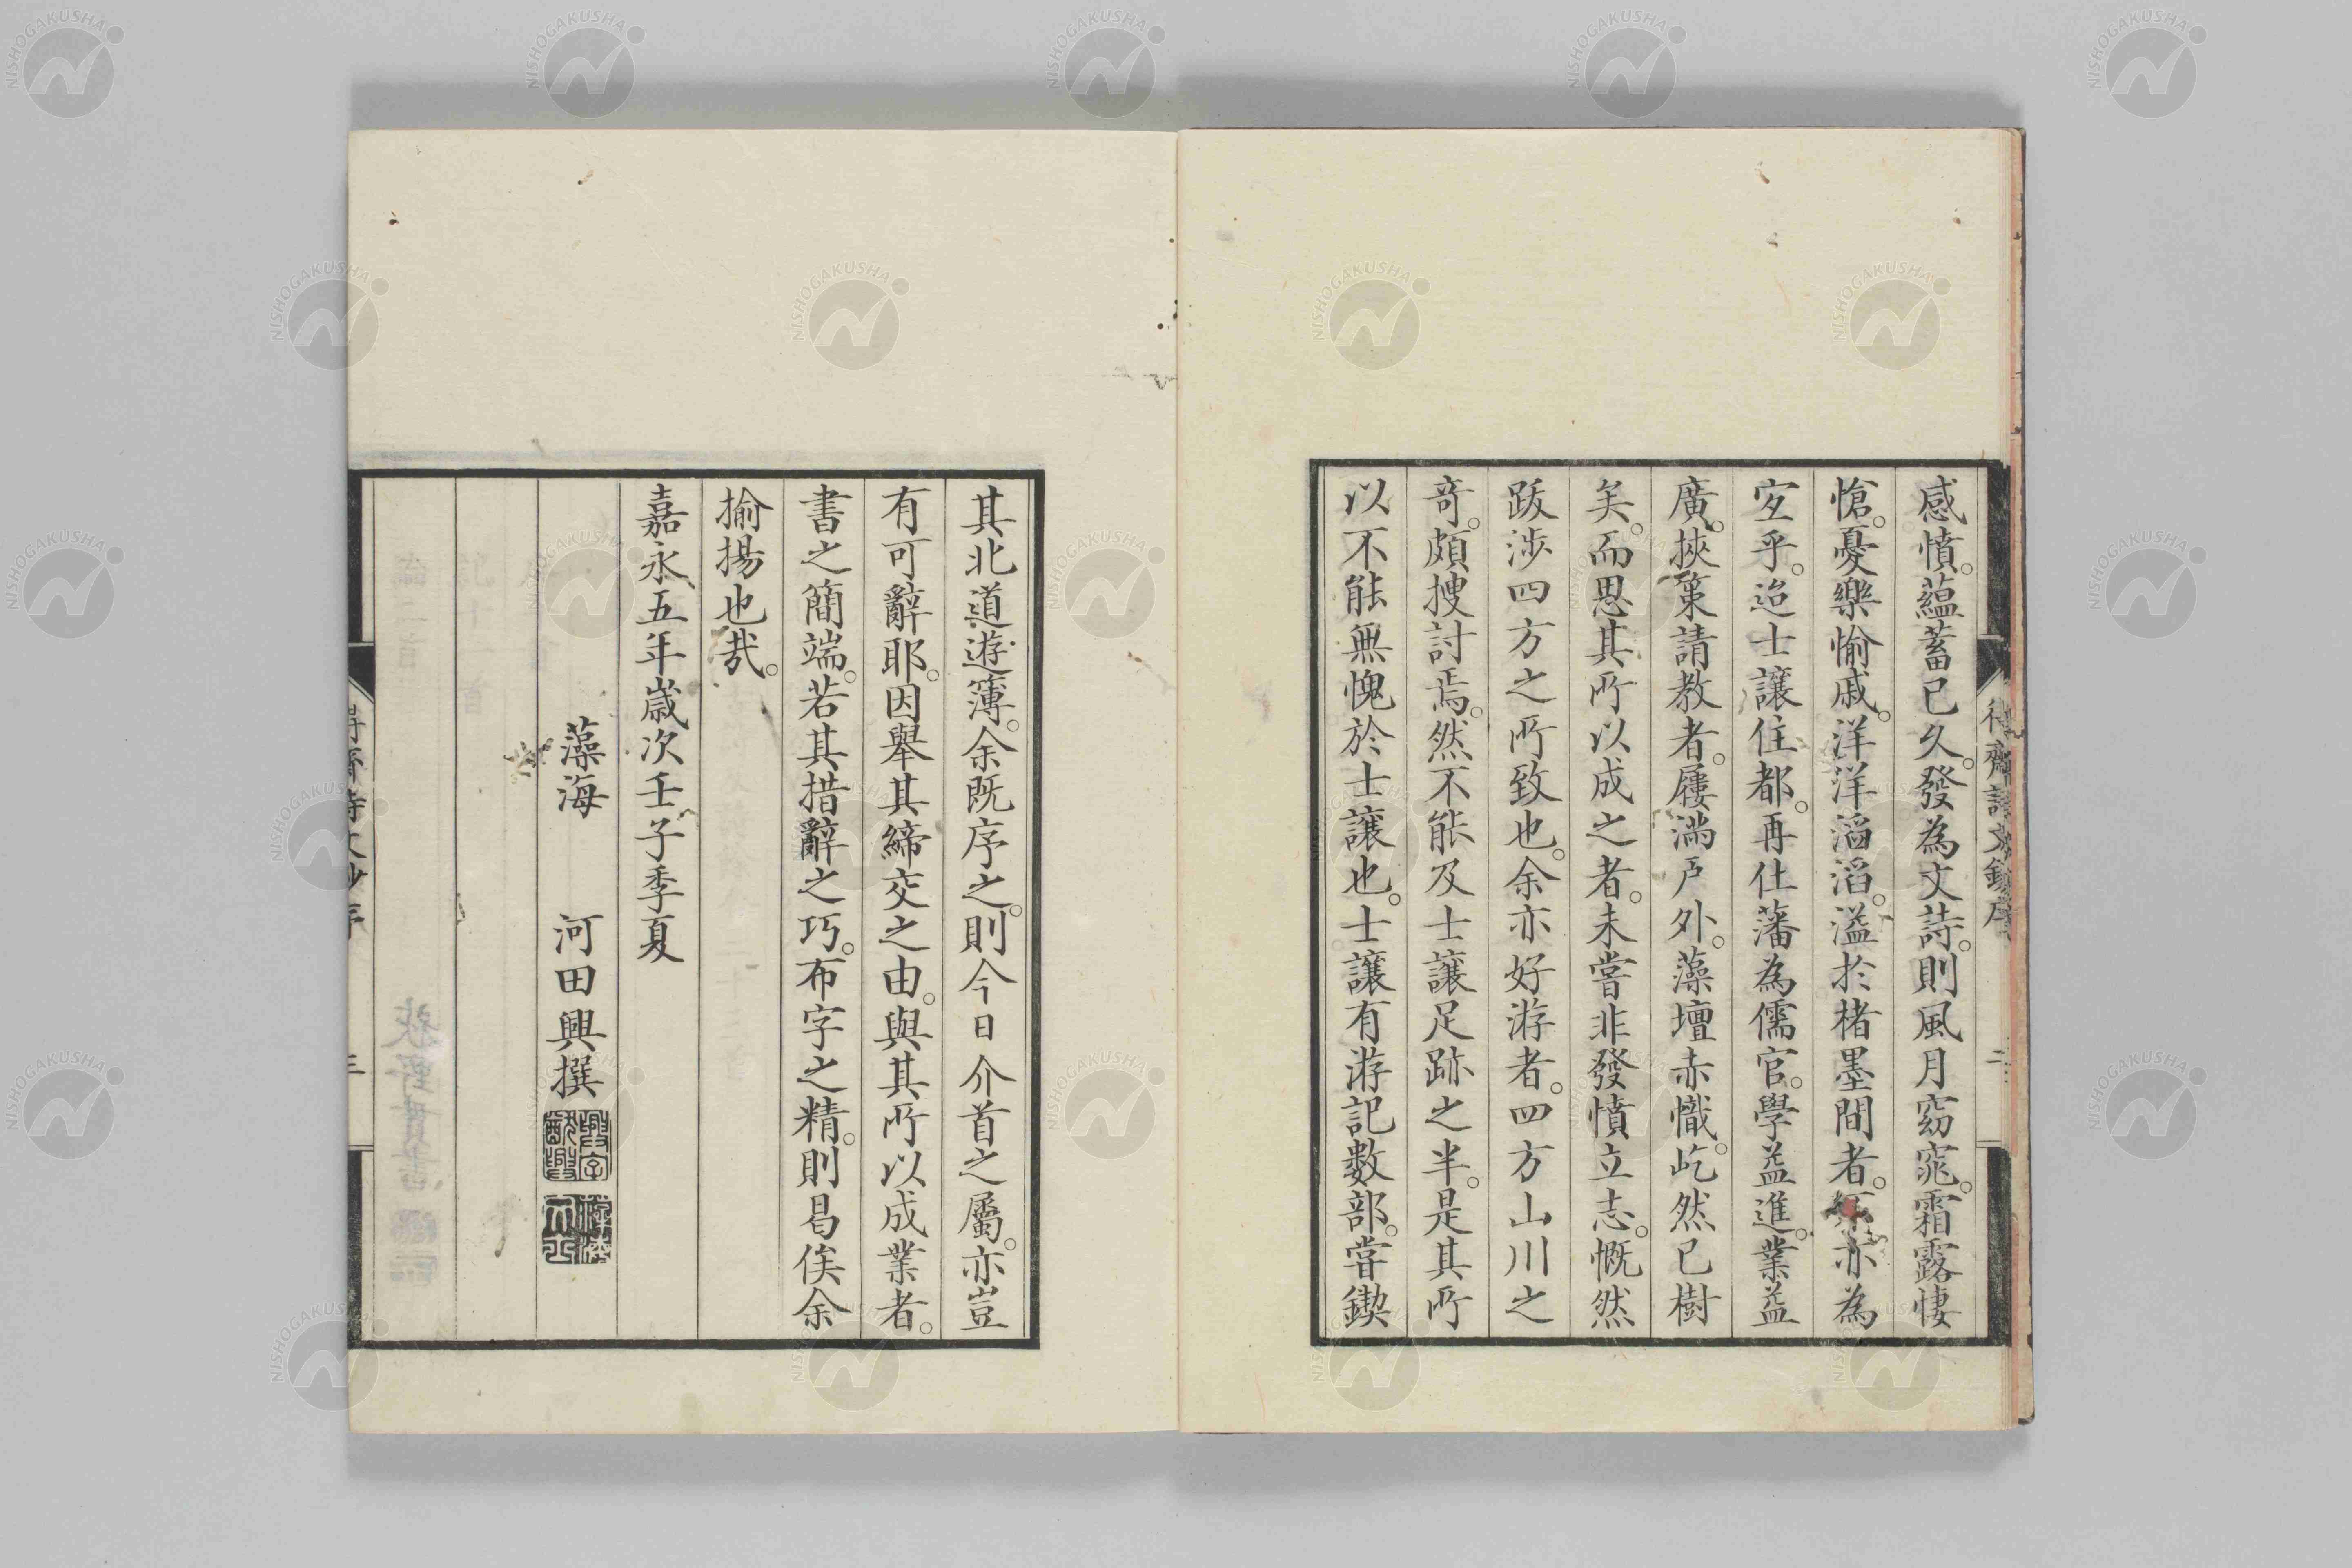 感憤。蘊蓄已久。發為文詩。則風月窈窕。霜露悽
愴。憂樂愉戚。洋洋滔滔。溢於楮墨間者。亦為
宜乎。迨士讓住都。再仕藩為儒官。學益進。業益
廣。挾策請教者。屨滿戶外。藻壇赤幟。屹然已樹
矣。而思其所以成之者。未嘗非發憤立志。慨然
跋涉四方之所致也。余亦好游者。四方山川之
奇。頗搜討焉。然不能及士讓足跡之半。是其所
以不能無愧於士讓也。士讓有游記數部。嘗鍥
得齋詩文鈔序
二
其北道遊簿。余既序之。則今日介首之屬。亦豈
有可辭耶。因舉其締交之由。與其所以成業者。
書之簡端。若其措辭之巧。布字之精。則曷俟余
揄揚也哉。
嘉永五年歲次壬子季夏
藻海 河田興撰
得齋詩文鈔序
三
NISHOGAKUSHA